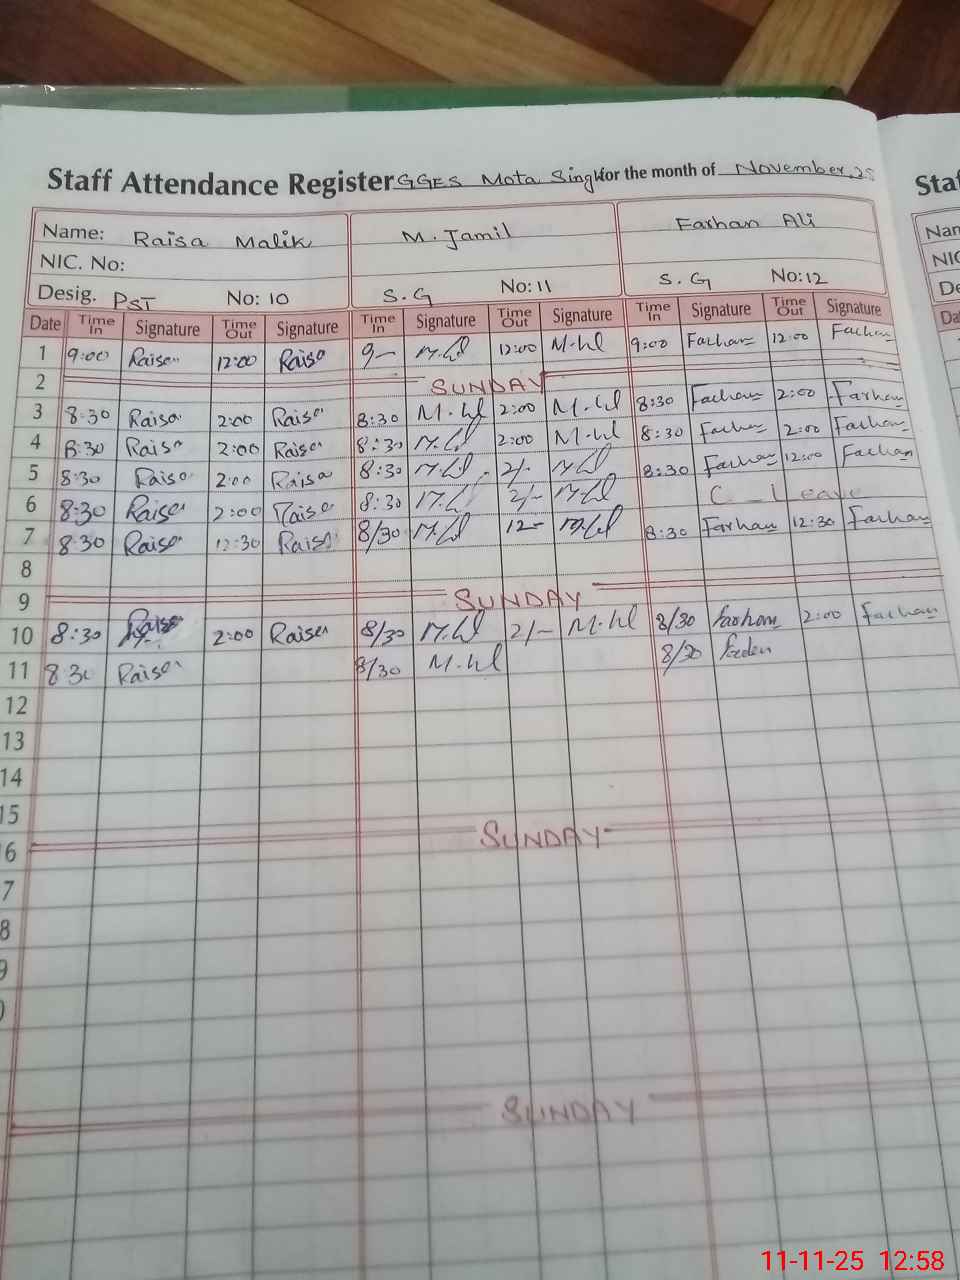 Staff Attendance Register GGES Mota Singh for the month of November, 25
Name: Raisa Malik M. Jamil Farhan Ali
NIC. No:
Desig. PST No: 10 S.G No: 11 S.G No: 12
Date Time In Signature Time Out Signature Time In Signature Time Out Signature Time In Signature Time Out Signature
1 9:00 Raisa 12:00 Raisa 9— 12:00 9:00 Farhan 12:00 Farhan
2 SUNDAY
3 8:30 Raisa 2:00 Raisa 8:30 2:00 8:30 Farhan 2:00 Farhan
4 8:30 Raisa 2:00 Raisa 8:30 2:00 8:30 Farhan 2:00 Farhan
5 8:30 Raisa 2:00 Raisa 8:30 2/- 8:30 Farhan 12:00 Farhan
6 8:30 Raisa 2:00 Raisa 8:30 2/- C_Leave
7 8:30 Raisa 12:30 Raisa 8/30 12- 8:30 Farhan 12:30 Farhan
8
9 SUNDAY
10 8:30 Raisa 2:00 Raisa 8/30 2/- 8/30 Farhan 2:00 Farhan
11 8:30 Raisa 8/30 8/30
12
13
14
15
6 SUNDAY
7
8
9
SUNDAY
Staf
Nan
NIC
De
Da
11-11-25 12:58